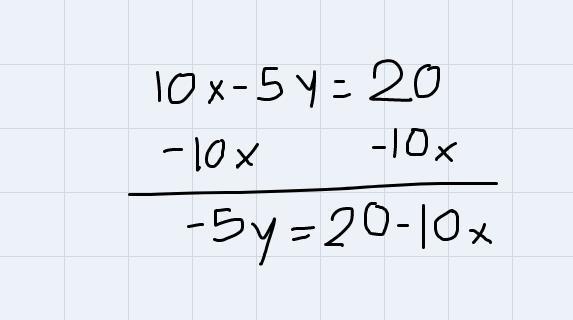 10x-5y=20
-10x -10x
-5y=20-10x